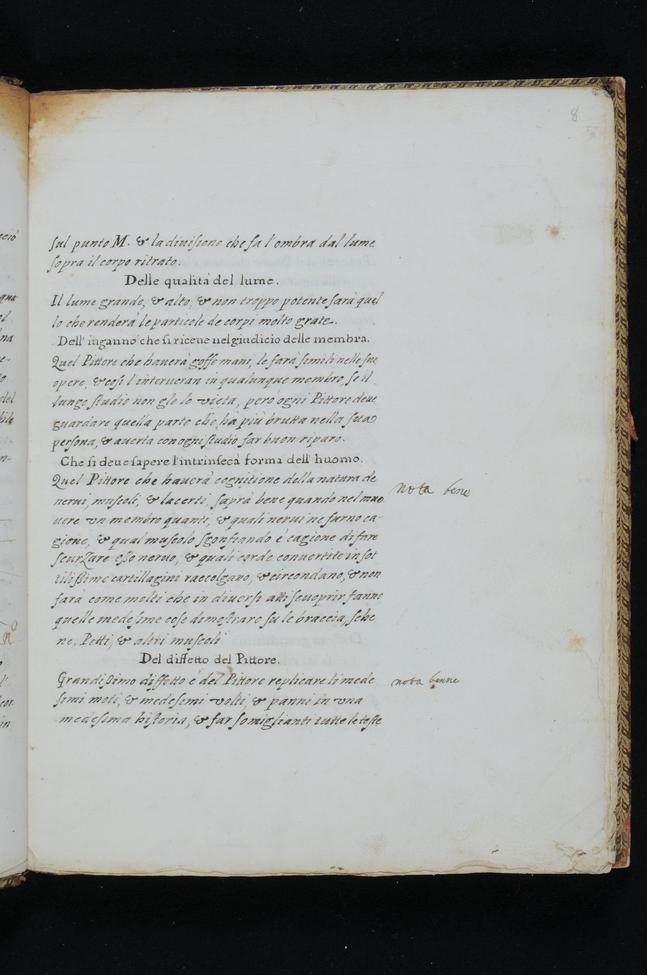 8
sul punto M. & la diuisione che fa l'ombra dal lume
sopra il corpo ritrato.
Delle qualità del lume.
Il lume grande, & alto, & non troppo potente sarà quel
lo che renderà le particole de corpi molto grate.
Dell' inganno che si riceue nel giudicio delle membra.
Quel Pittore che hauerà goffe mani, le farà simili nelle sue
opere, & cosi l'interueran in qualunque membro, se il
lungo studio non gle lo vieta, però ogni Pittore deue
guardare quella parte che ha più brutta nella sua
persona, & auerta con ogni studio far buon riparo.
Che si deue sapere l'intrinseca forma dell' huomo.
Quel Pittore che hauerà cognitione della natura de
nerui, muscoli, & lacerti, saprà bene quando nel muo
uere vn membro quanti, & quali nerui ne sarno ca-
gione, & qual muscolo sgonfiando è cagione di fare
scurzare esso neruo, & quali corde conuertite in sot
tilissime cartillagini raccolgano, & circondano, & non
farà come molti che in diuersi atti scuoprir fanno
quelle medesime cose dimostraro su le braccia, sche
ne, Petti, & altri muscoli
nota bene
Del diffetto del Pittore.
Grandissimo diffetto è del Pittore replicare li mede
simi moti, & medesimi volti, & panni in vna
medesima historia, & far somiglianti tutte le teste
nota benne